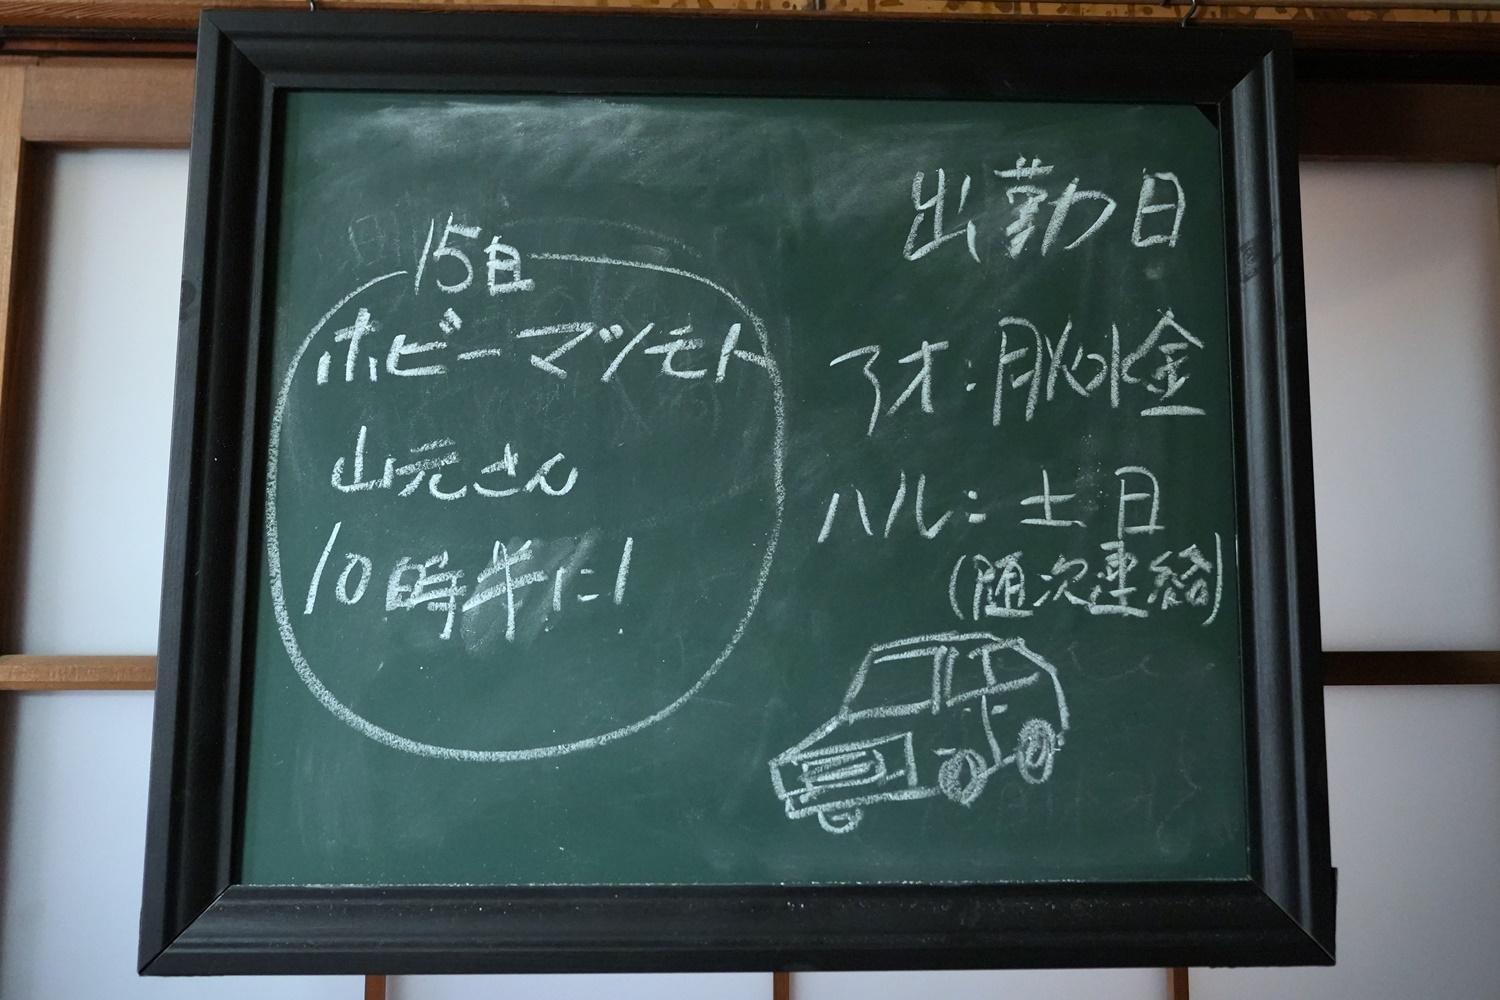 出勤日
アオ:月火水金
ハル:土日
(随次連絡)
15日
ホビーマツモト
山元さん
10時半に!